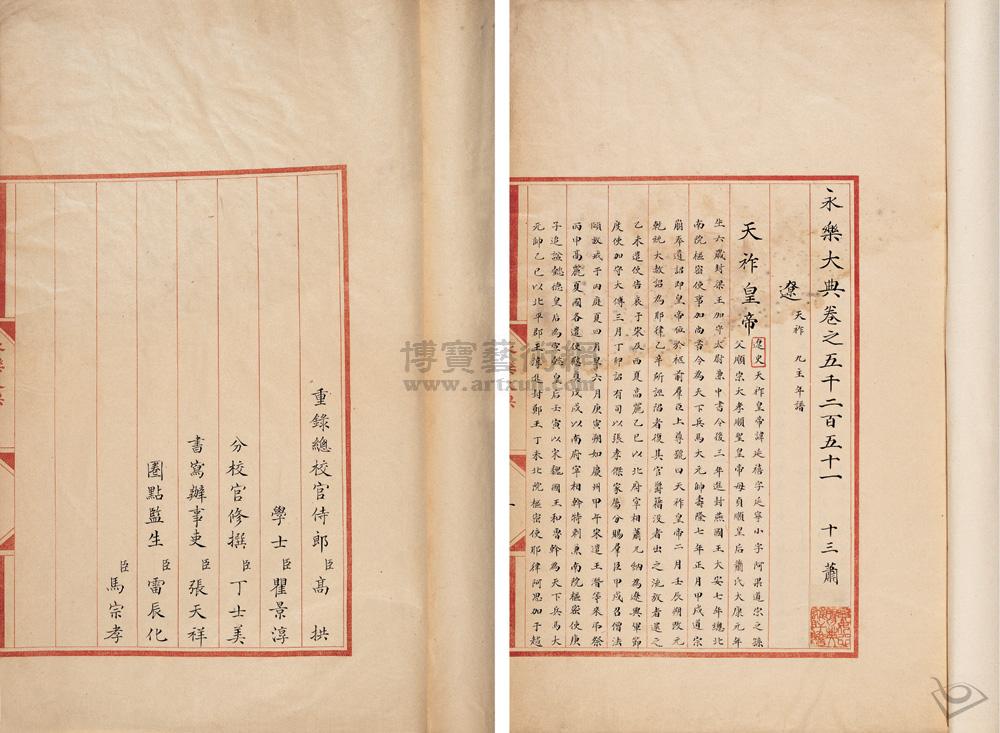 永樂大典卷之五千二百五十一 十三蕭
遼 天祚 九主年譜
天祚皇帝 遼史 天祚皇帝諱延禧字延寧小字阿果道宗之孫
父順宗大孝順聖皇帝母貞順皇后蕭氏大康元年
生六歲封梁王加守太尉兼中書令後三年進封燕國王大安七年總北
南院樞密使事加尚書令為天下兵馬大元帥壽隆七年正月甲戌道宗
崩奉遺詔即皇帝位於柩前羣臣上尊號曰天祚皇帝二月壬辰朔改元
乾統大赦詔為耶律乙辛所誣陷者復其官爵籍没者出之流放者還之
乙未遣使告哀于宋及西夏高麗乙巳以北府宰相蕭兀納為遼興軍節
度使加守太傅三月丁卯詔有司以張孝傑家屬分賜羣臣甲戌召僧法
頤放戒于内庭夏四月旱六月庚寅朔如慶州甲午宋遣王潛等來弔祭
丙申高麗夏國各遣使慰奠戊戌以南府宰相斡特剌兼南院樞密使庚
子追謚懿德皇后為宣懿皇后壬寅以宋魏國王和魯斡為天下兵馬大
元帥乙巳以北平郡王淳進封鄭王丁未北院樞密使耶律阿思加于越
重錄總校官侍郎臣高 拱
學士臣瞿景淳
分校官修撰臣丁士美
書寫辦事吏臣張天祥
圈點監生臣雷辰化
臣馬宗孝
博寶藝術網
www.artxun.com